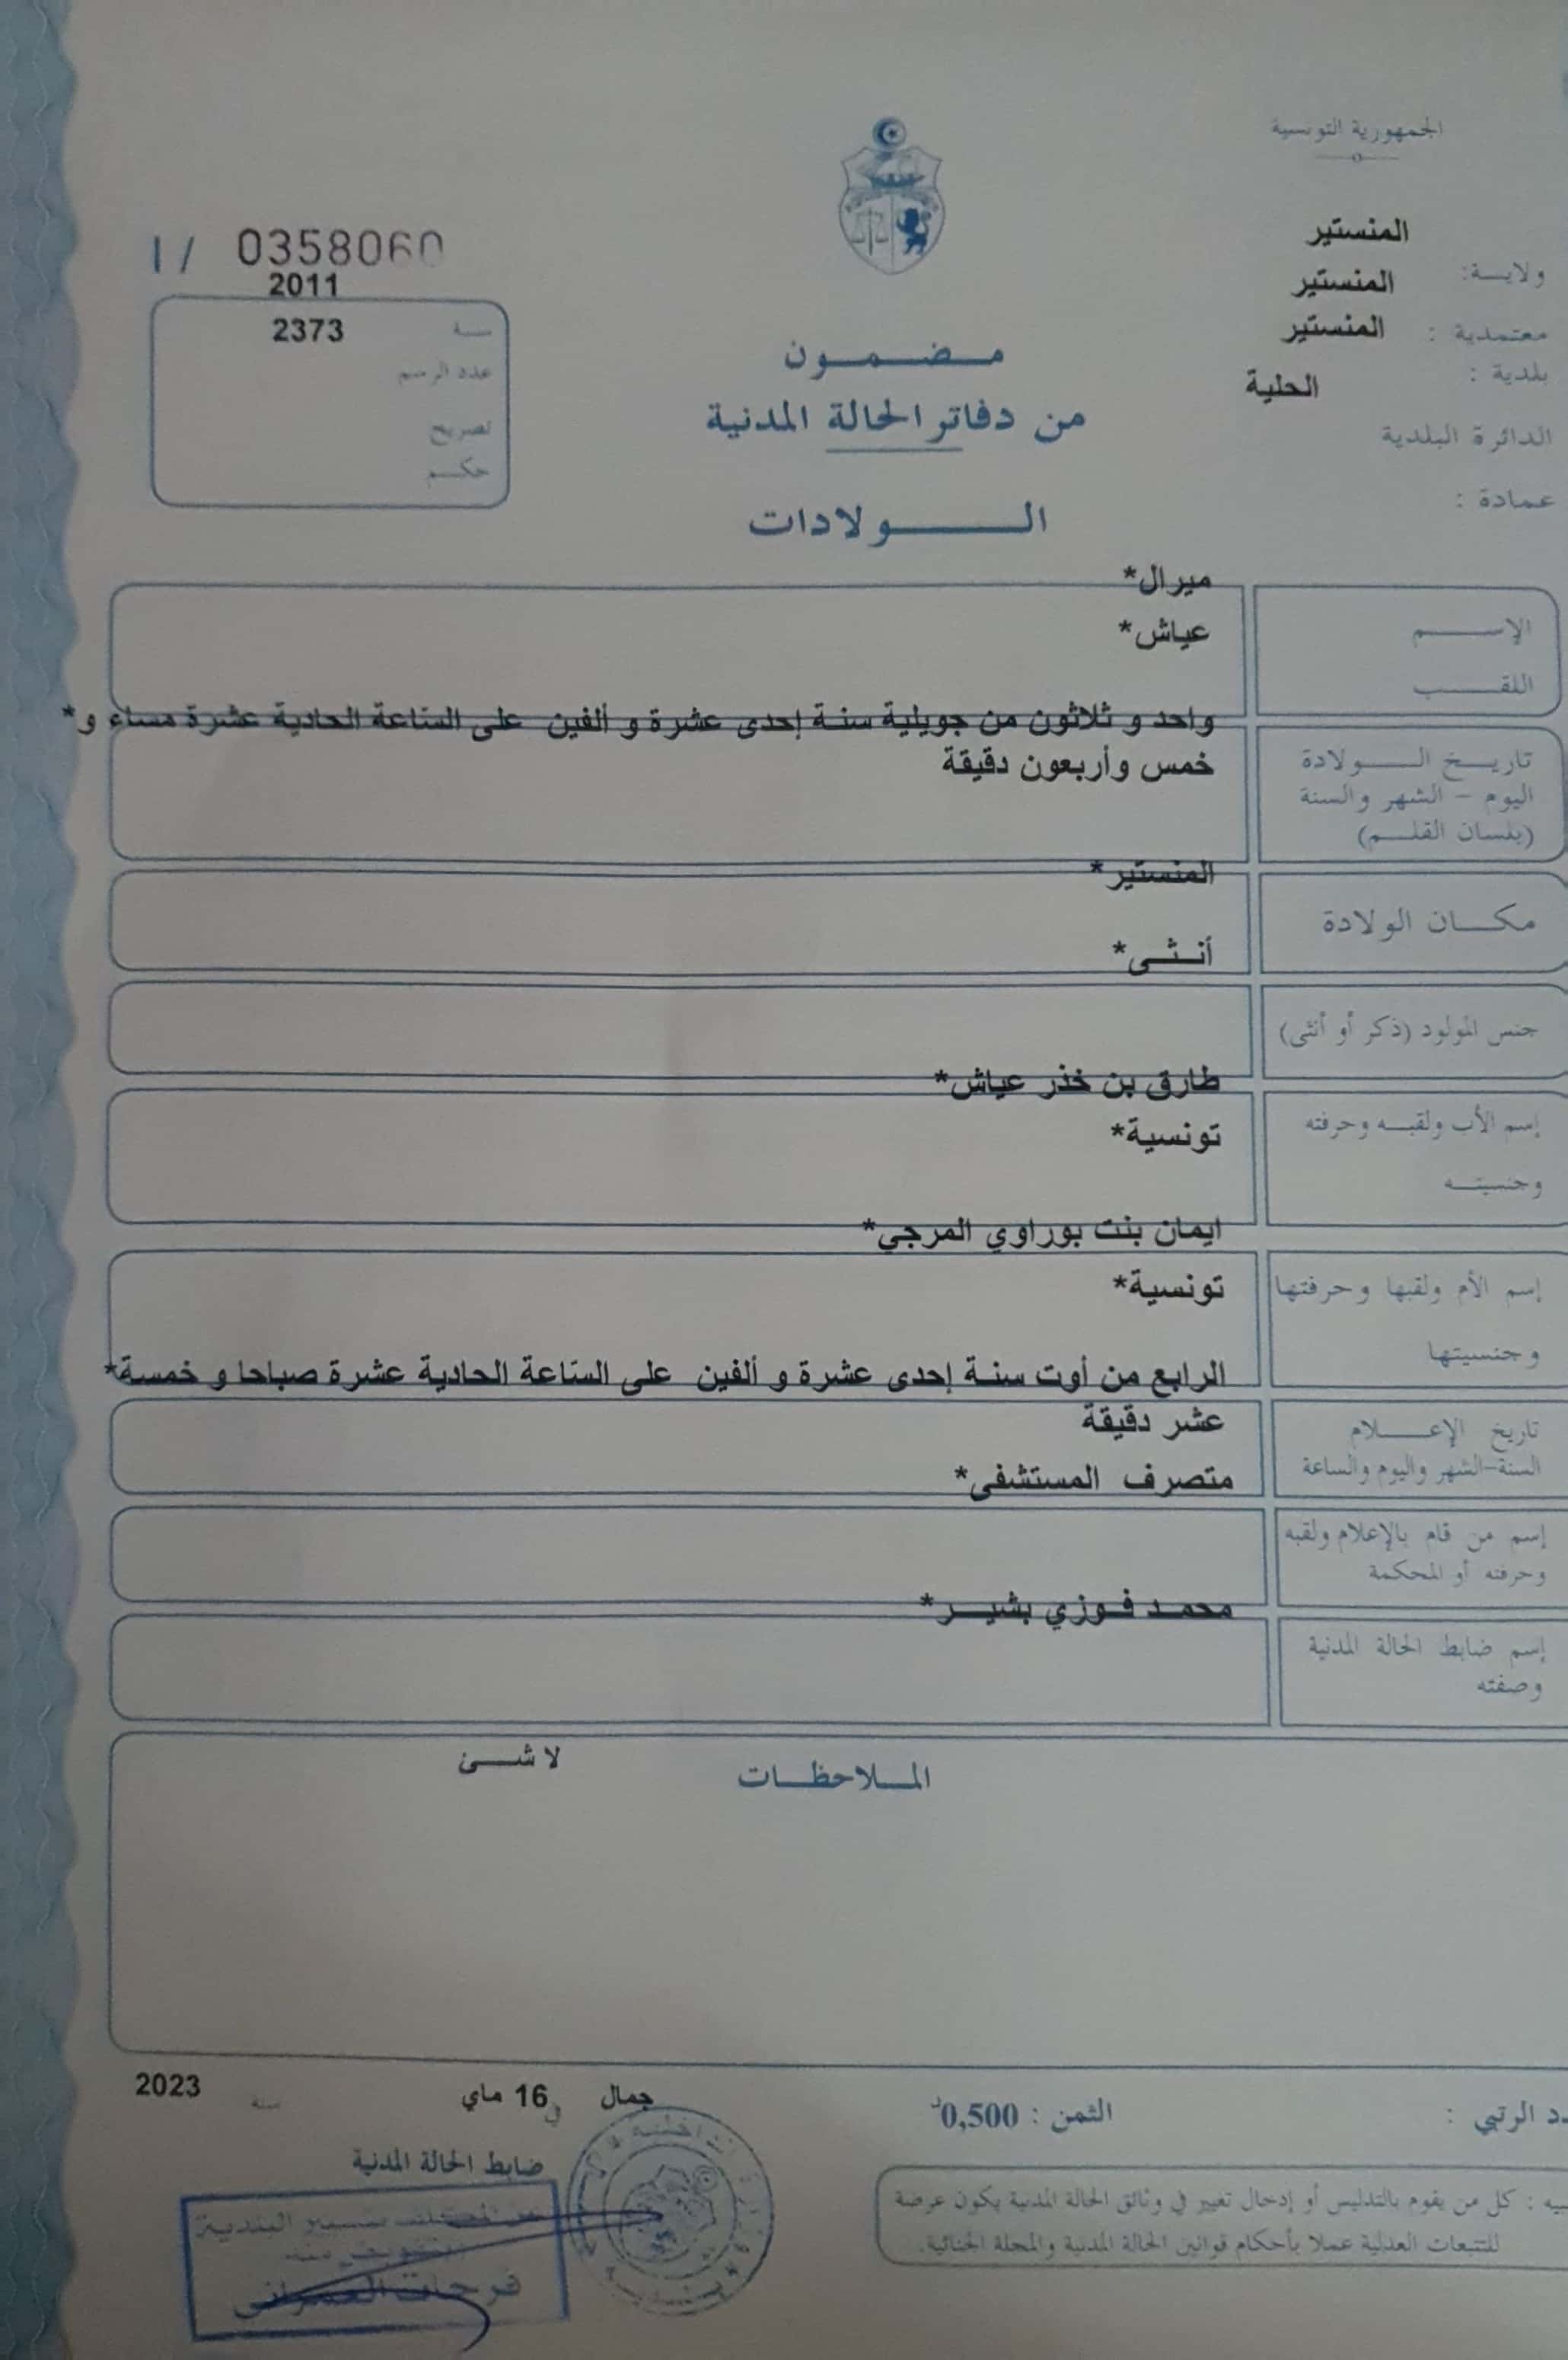 الجمهورية التونسية
المنستير
ولايـــة:
المنستير
معتمدية :
المنستير
بلدية :
الحلية
الدائرة البلدية
عمادة :
I / 0358060
2011
سنة
2373
عدد الرسم
تصريح
حكم
مضمون
من دفاتر الحالة المدنية
الولادات
ميرال*
الإسم
عياش*
اللقب
واحد و ثلاثون من جويلية سنة إحدى عشرة و ألفين على الساعة الحادية عشرة مساء و*
تاريخ الولادة
خمس وأربعون دقيقة
اليوم - الشهر والسنة
(بلسان القلم)
المنستير*
مكان الولادة
أنثى*
جنس المولود (ذكر أو أنثى)
طارق بن خذر عياش*
إسم الأب ولقبه وحرفته
تونسية*
وجنسيته
ايمان بنت بوراوي المرجي*
إسم الأم ولقبها وحرفتها
تونسية*
وجنسيتها
الرابع من أوت سنة إحدى عشرة و ألفين على الساعة الحادية عشرة صباحا و خمسة*
تاريخ الإعلام
عشر دقيقة
السنة-الشهر واليوم والساعة
متصرف المستشفى*
إسم من قام بالإعلام ولقبه
وحرفته أو المحكمة
محمد فوزي بشير*
إسم ضابط الحالة المدنية
وصفته
الملاحظات
لا شئ
د الرتبي :
الثمن : 0,500د
جمال في 16 ماي سنة 2023
ضابط الحالة المدنية
يه : كل من يقوم بالتدليس أو إدخال تغيير في وثائق الحالة المدنية يكون عرضة
للتتبعات العدلية عملا بأحكام قوانين الحالة المدنية والمجلة الجنائية.
بتسيير البلدية
فرحات العمراني